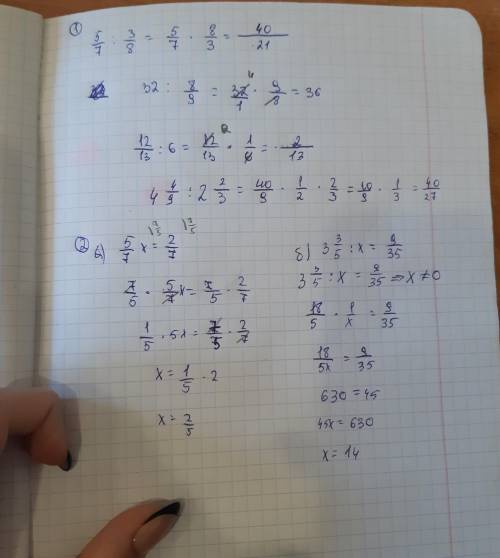 1
5/7 : 3/8 = 5/7 · 8/3 = 40/21
32 : 8/9 = 32/1 · 9/8 = 36
12/13 : 6 = 12/13 · 1/6 = 2/13
4 4/9 : 2 2/3 = 40/9 · 1/2 · 2/3 = 10/9 · 1/3 = 40/27
2 а) 5/7 x = 2/7
7/5 · 5/7 x = 7/5 · 2/7
1/5 · 5x = 7/5 · 2/7
x = 1/5 · 2
x = 2/5
б) 3 3/5 : x = 9/35
3 3/5 : x = 9/35 ⇒ x ≠ 0
18/5 · 1/x = 9/35
18/5x = 9/35
630 = 45
45x = 630
x = 14